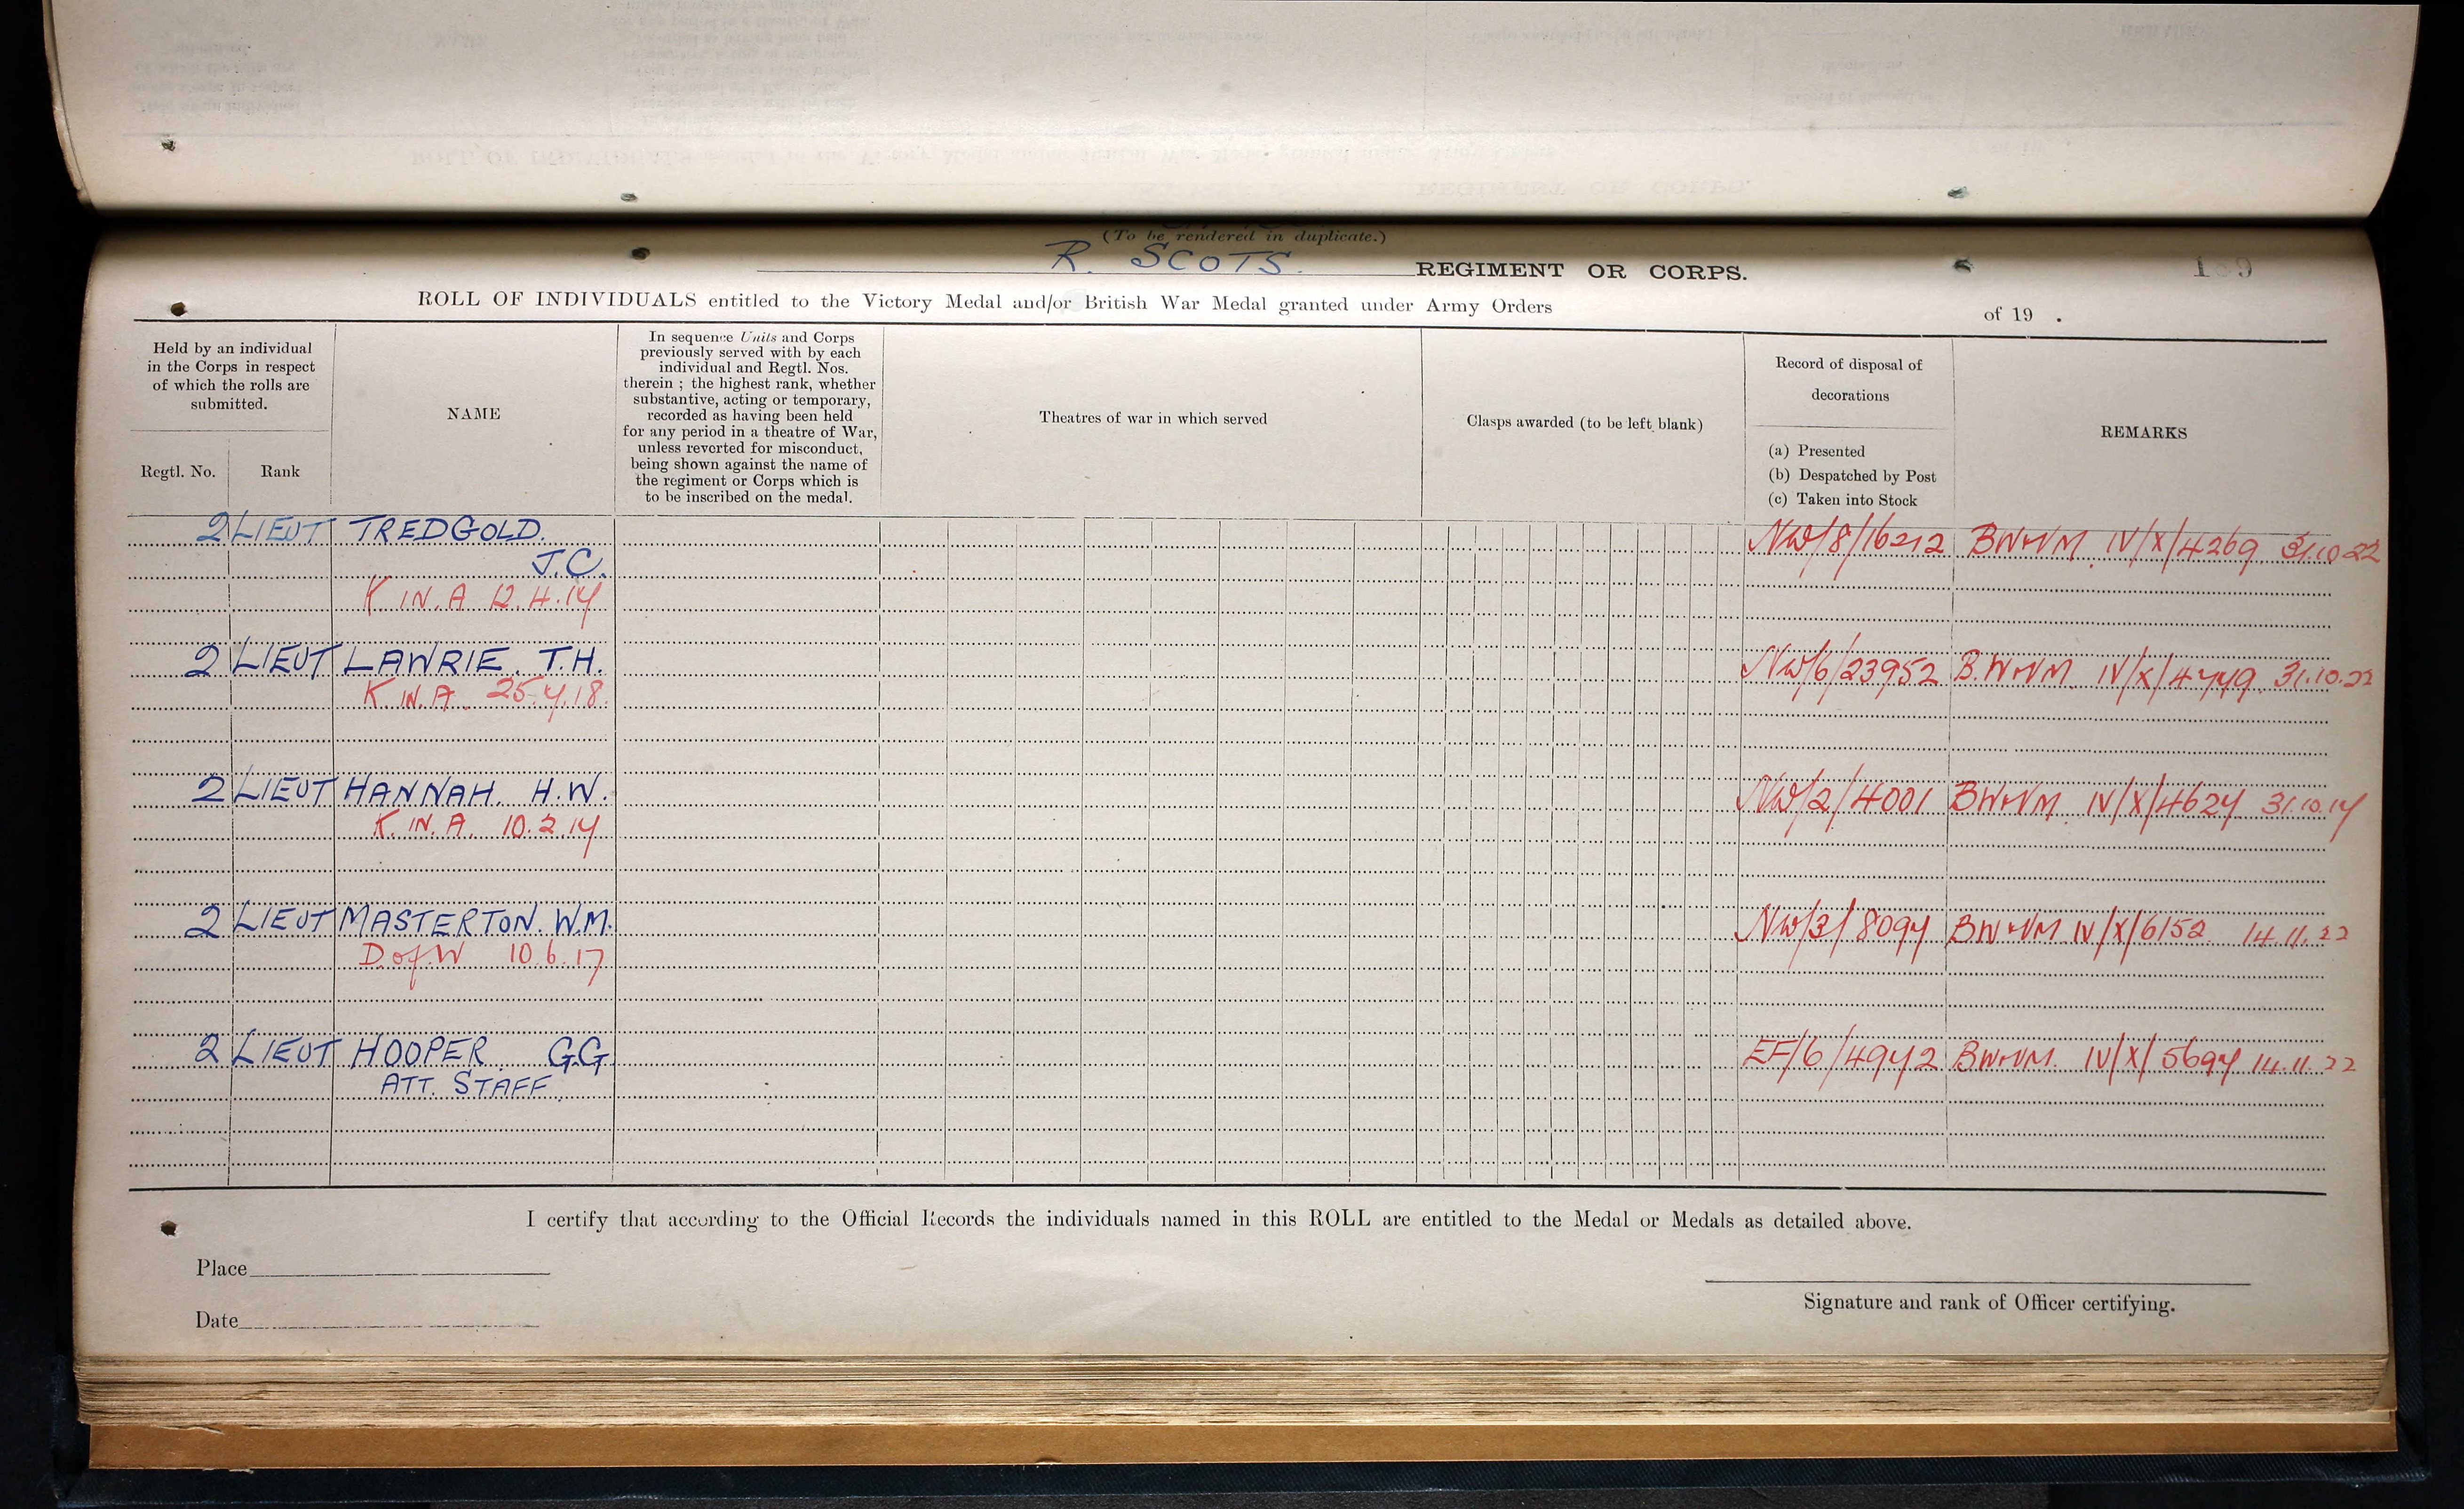 (To be rendered in duplicate.)
R. SCOTS. REGIMENT OR CORPS.
ROLL OF INDIVIDUALS entitled to the Victory Medal and/or British War Medal granted under Army Orders of 19 .
Held by an individual
in the Corps in respect
of which the rolls are
submitted.
Regtl. No. Rank
NAME
In sequence Units and Corps
previously served with by each
individual and Regtl. Nos.
therein ; the highest rank, whether
substantive, acting or temporary,
recorded as having been held
for any period in a theatre of War,
unless reverted for misconduct,
being shown against the name of
the regiment or Corps which is
to be inscribed on the medal.
Theatres of war in which served
Clasps awarded (to be left blank)
Record of disposal of
decorations
(a) Presented
(b) Despatched by Post
(c) Taken into Stock
REMARKS
2 LIEUT TREDGOLD. NW/8/16212 BW&VM IV/X/4269 31.10.22
J.C.
K IN. A 12.4.17
2 LIEUT LAWRIE. T.H. NW/6/23952 B.W&VM IV/X/4779 31.10.22
K. IN. A. 25.4.18.
2 LIEUT HANNAH. H.W. NW/2/4001 BW&VM IV/X/4627 31.10.17
K. IN. A. 10.2.17
2 LIEUT MASTERTON. W.M. NW/3/8097 BW&VM IV/X/6152 14.11.22
D of W 10.6.17
2 LIEUT HOOPER G.G. EF/6/4972 BW&VM. IV/X/5697 14.11.22
ATT. STAFF.
I certify that according to the Official Records the individuals named in this ROLL are entitled to the Medal or Medals as detailed above.
Place
Date
Signature and rank of Officer certifying.